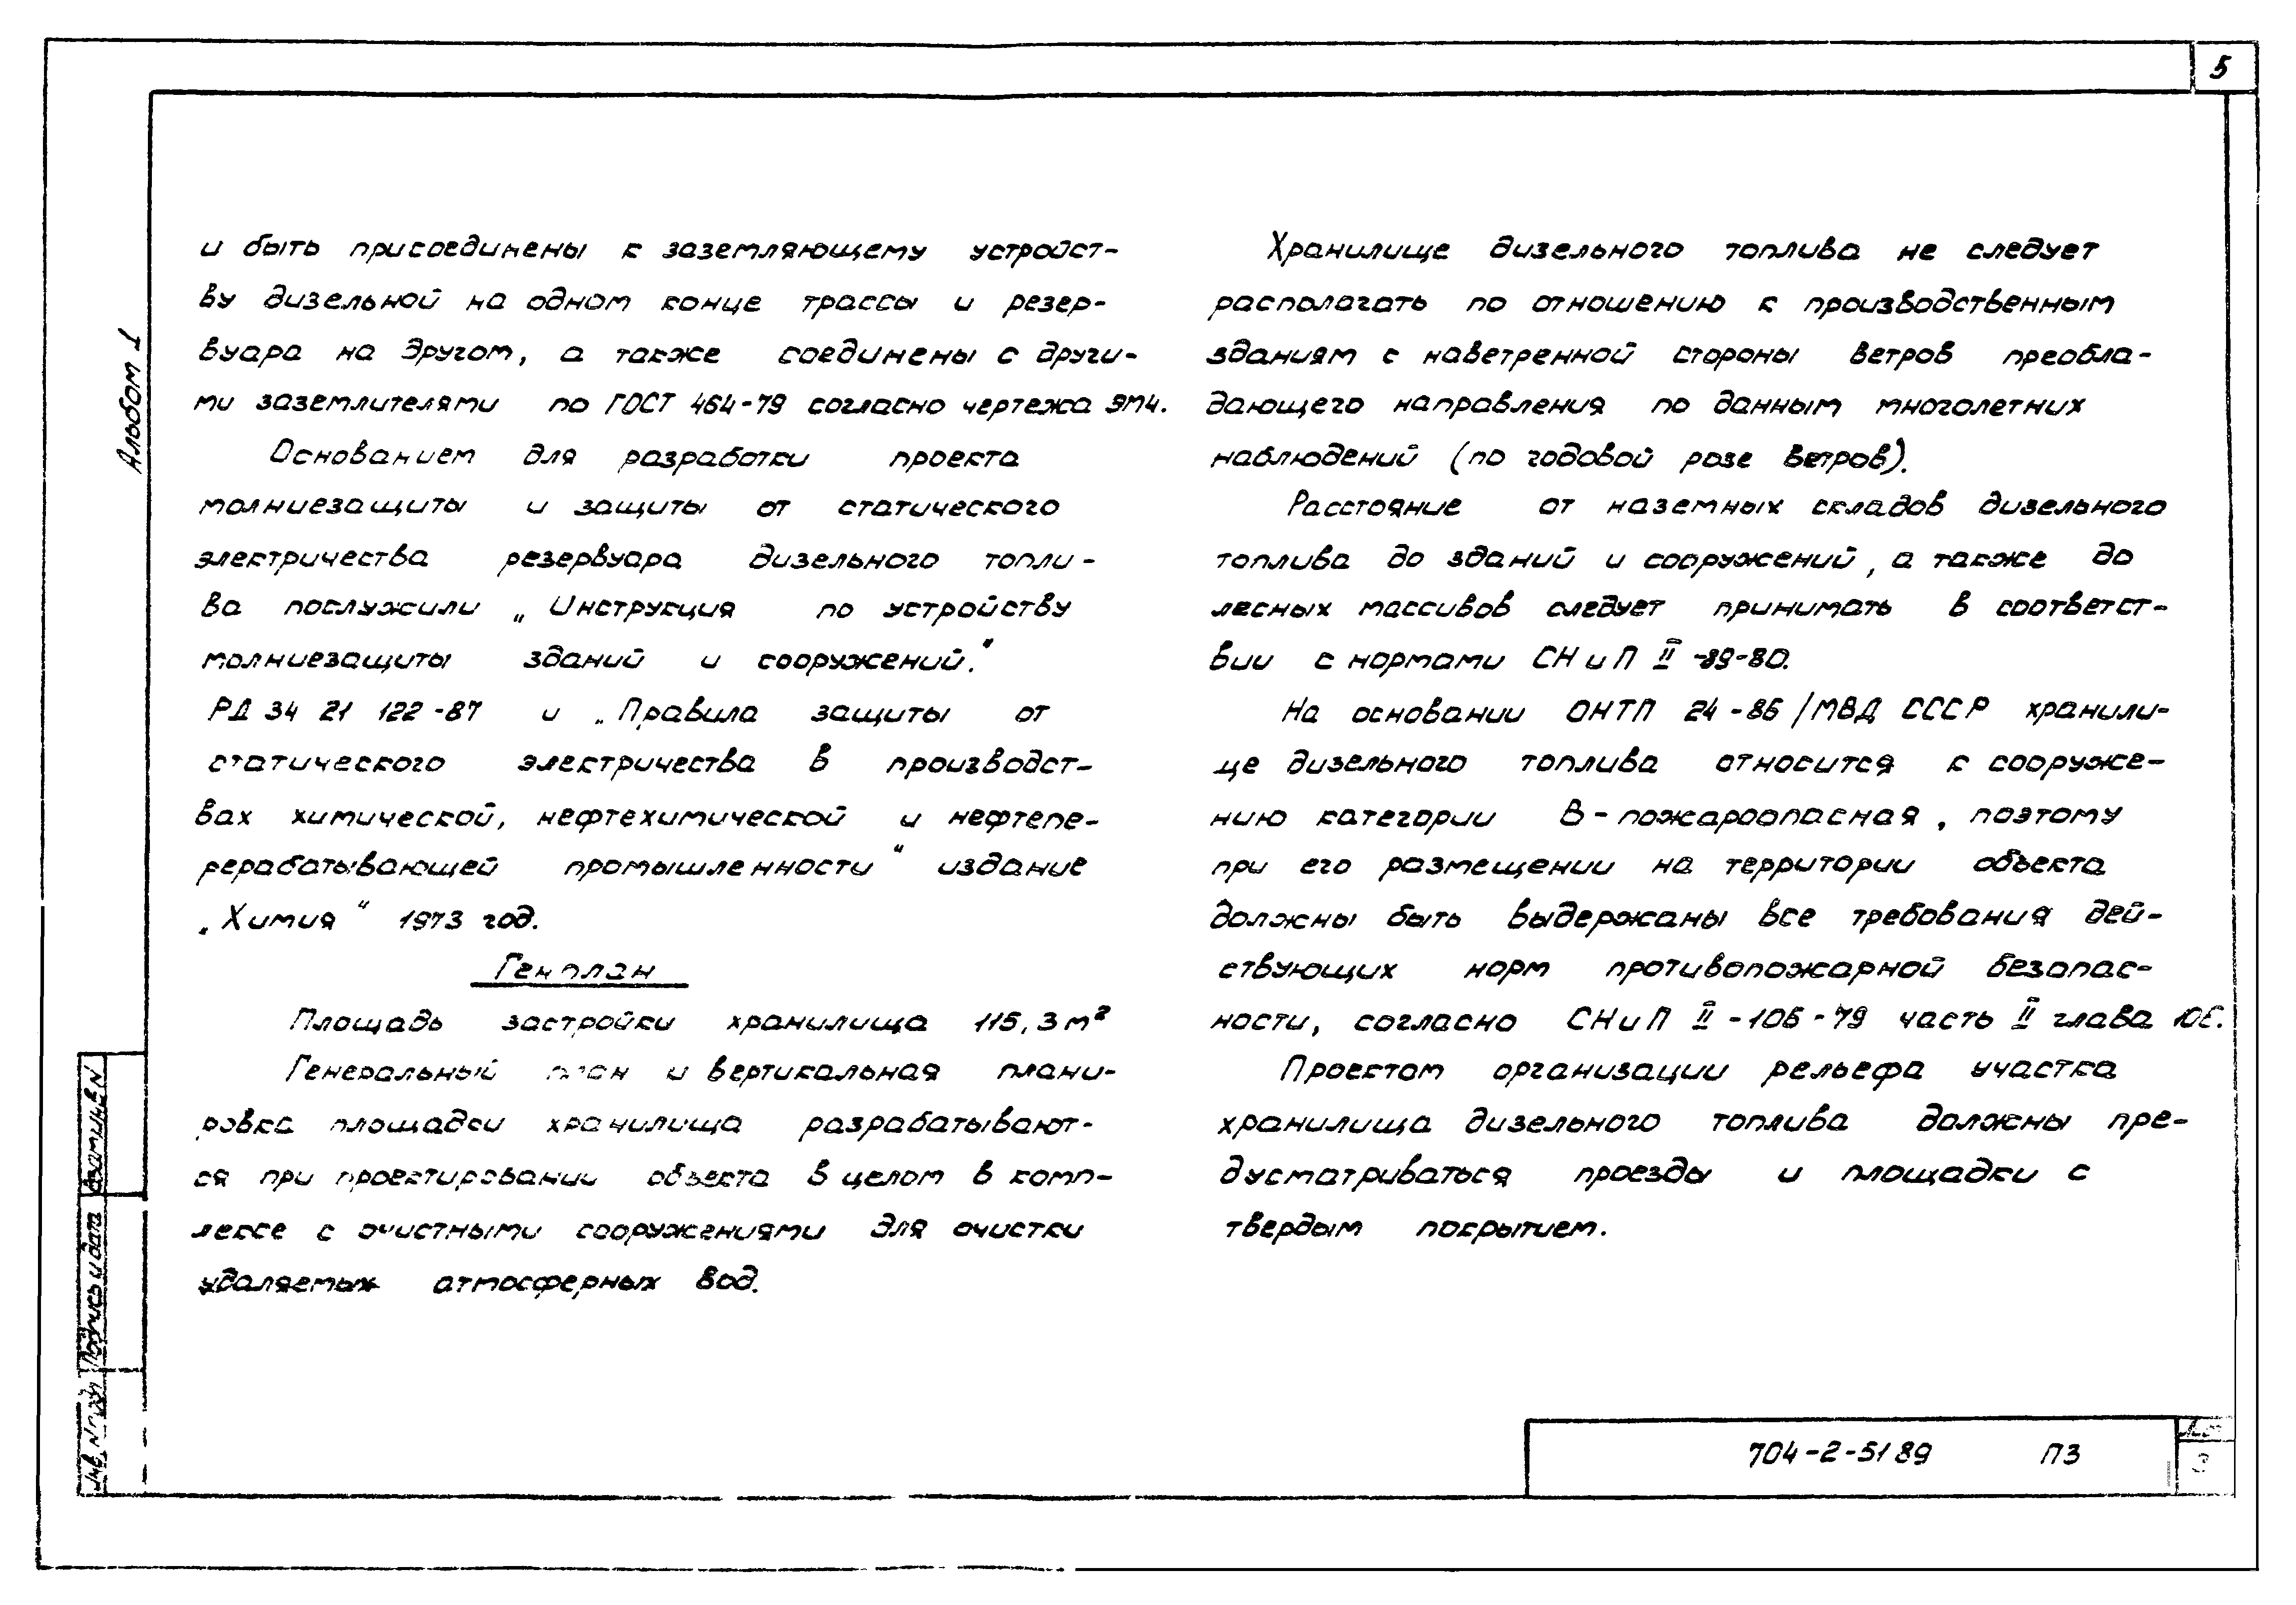 5
Альбом I
и быть присоединены к заземляющему устройст-
ву дизельной на одном конце трассы и резер-
вуара на другом, а также соединены с други-
ми заземлителями по ГОСТ 464-79 согласно чертежа ЭМ4.
Основанием для разработки проекта
молниезащиты и защиты от статического
электричества резервуара дизельного топли-
ва послужили „Инструкция по устройству
молниезащиты зданий и сооружений."
РД 34 21 122-87 и „Правила защиты от
статического электричества в производст-
вах химической, нефтехимической и нефтепе-
рерабатывающей промышленности" издание
„Химия" 1973 год.
Генплан
Площадь застройки хранилища 115,3м²
Генеральный план и вертикальная плани-
ровка площадки хранилища разрабатывают-
ся при проектировании объекта в целом в комп-
лексе с очистными сооружениями для очистки
удаляемых атмосферных вод.
Хранилище дизельного топлива не следует
располагать по отношению к производственным
зданиям с наветренной стороны ветров преобла-
дающего направления по данным многолетних
наблюдений (по годовой розе ветров).
Расстояние от наземных складов дизельного
топлива до зданий и сооружений, а также до
лесных массивов следует принимать в соответст-
вии с нормами СНиП II-89-80.
На основании ОНТП 24-86/МВД СССР хранили-
ще дизельного топлива относится к сооруже-
нию категории В-пожароопасная, поэтому
при его размещении на территории объекта
должны быть выдержаны все требования дей-
ствующих норм противопожарной безопас-
ности, согласно СНиП II-106-79 часть II глава 106.
Проектом организации рельефа участка
хранилища дизельного топлива должны пре-
дусматриваться проезды и площадки с
твердым покрытием.
Взам инв N
Подпись и дата
Инв. N подл
704-2-51 89 ПЗ
3